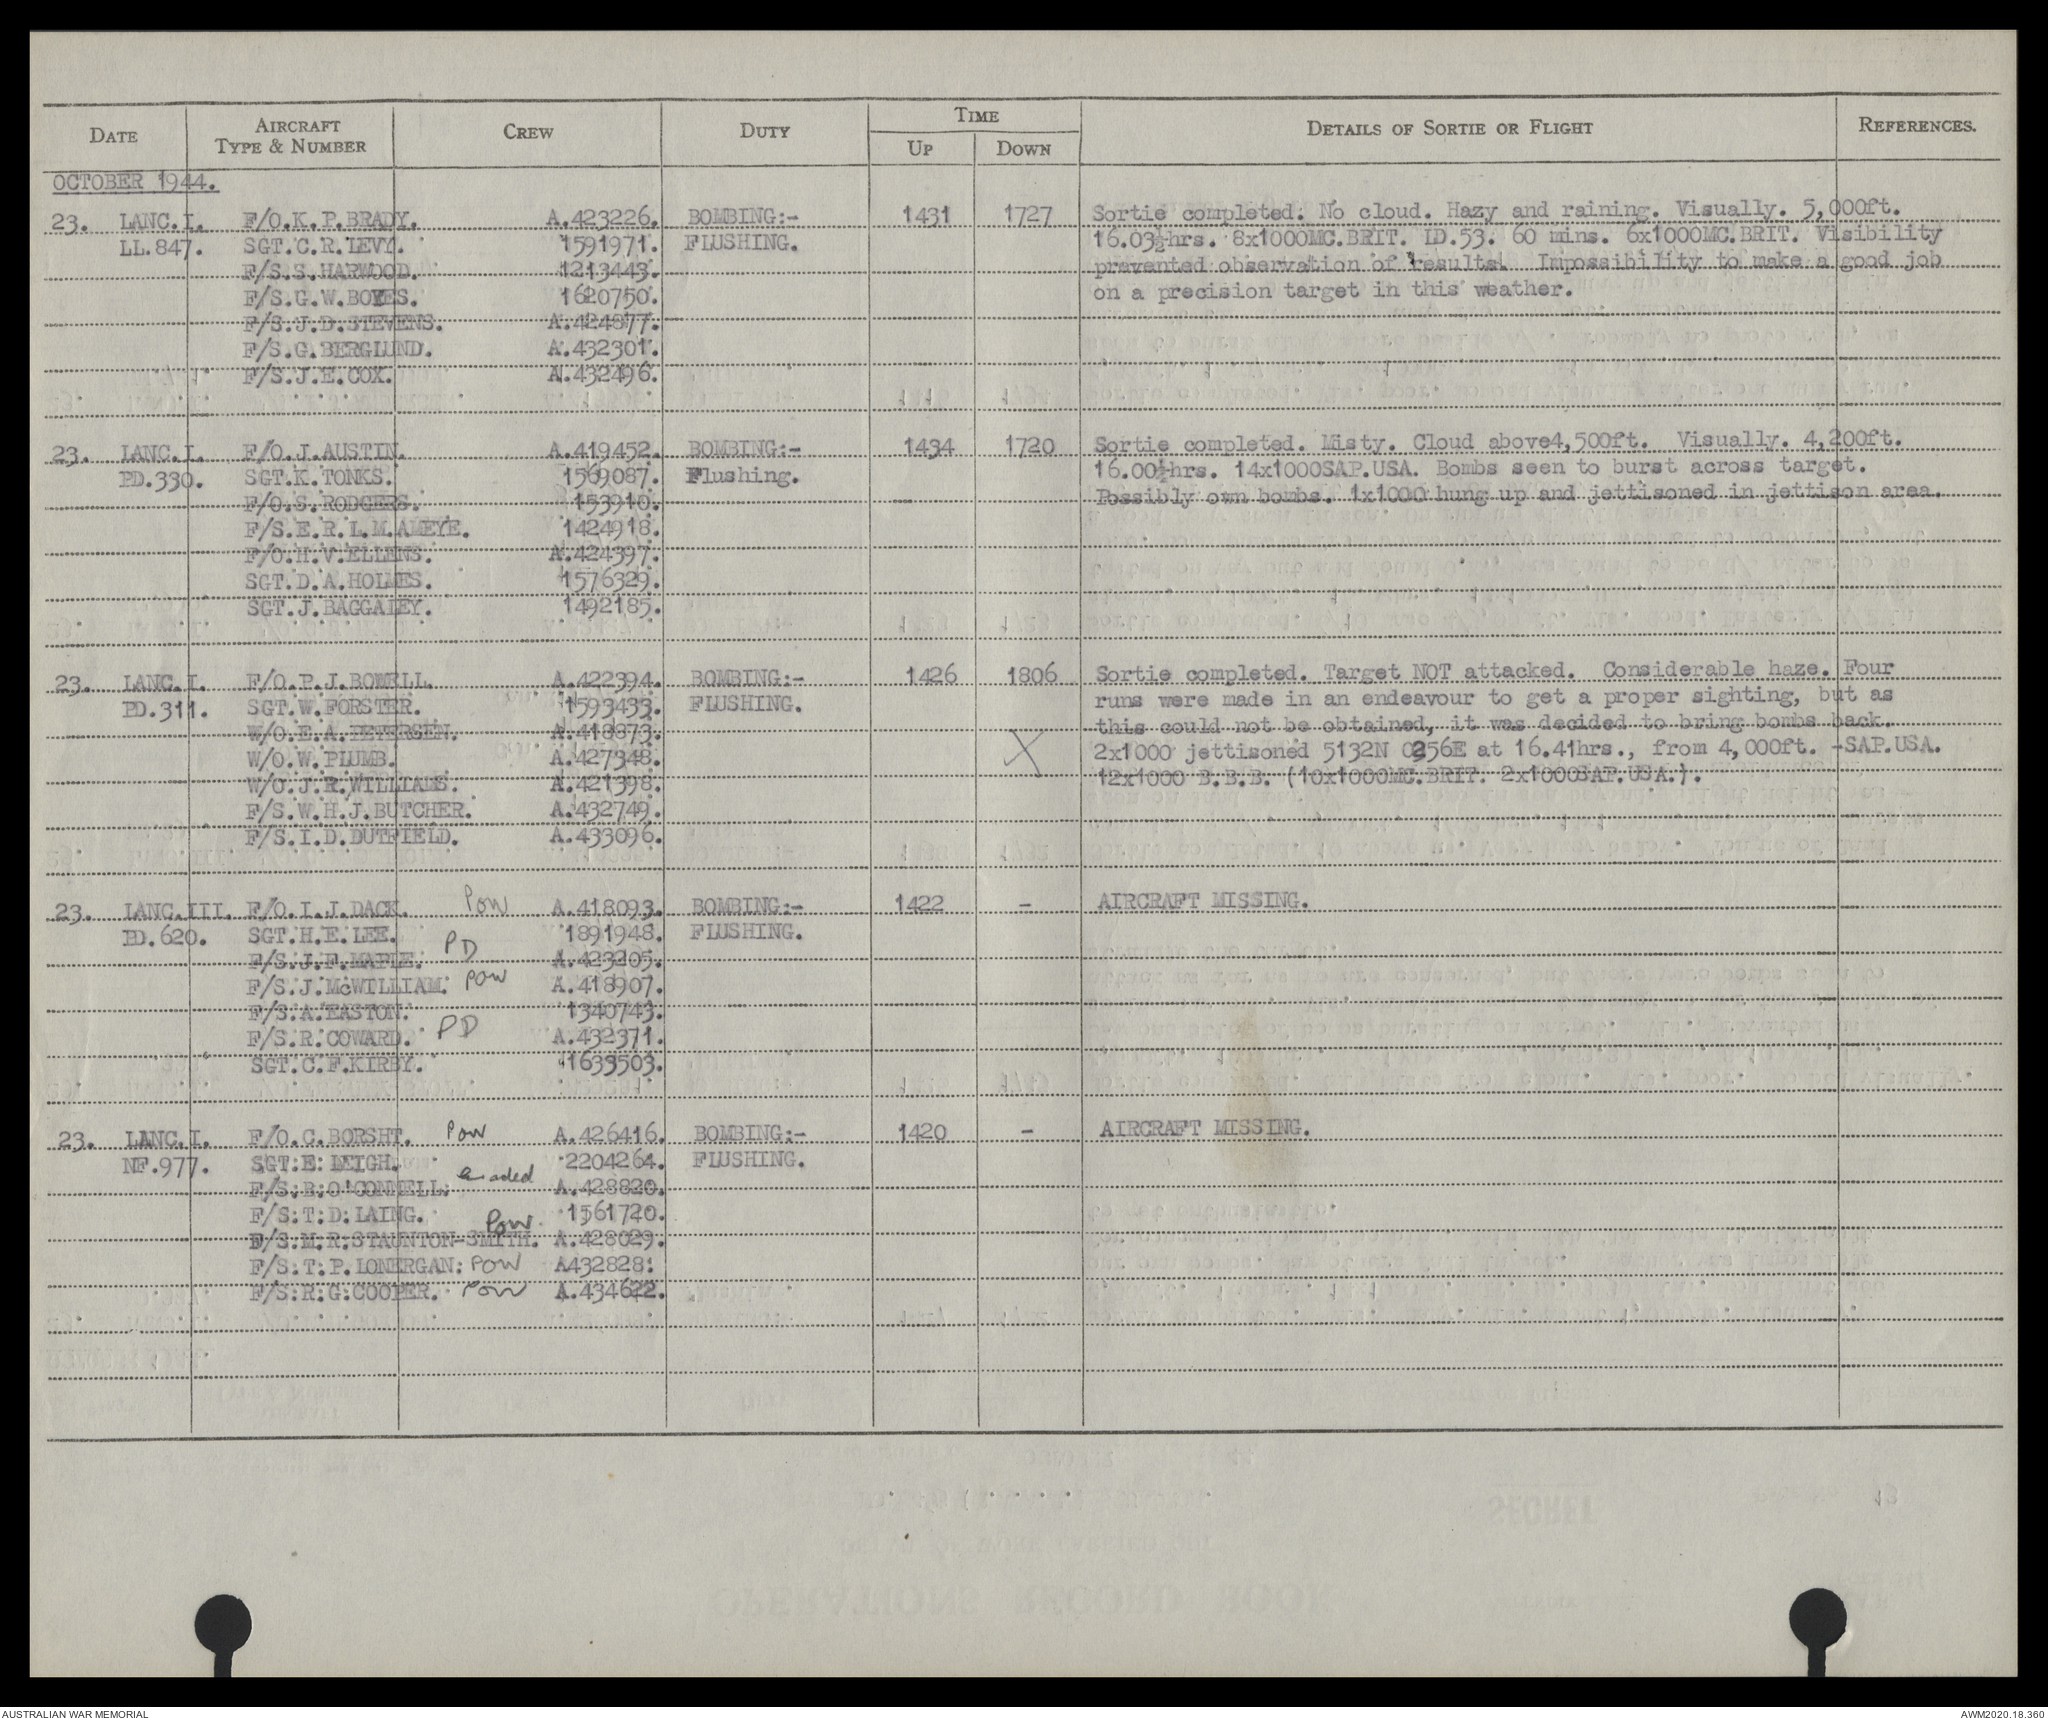 DATE AIRCRAFT TYPE & NUMBER CREW DUTY TIME UP DOWN DETAILS OF SORTIE OR FLIGHT REFERENCES.
OCTOBER 1944.
23. LANC.I. F/O.K.P.BRADY. A.423226. BOMBING:- 1431 1727 Sortie completed. No cloud. Hazy and raining. Visually. 5,000ft.
LL.847. SGT.C.R.LEVY. 1591971. FLUSHING. 16.03½hrs. 8x1000MC.BRIT. ID.53. 60 mins. 6x1000MC.BRIT. Visibility
F/S.S.HARWOOD. 1213443. prevented observation of results. Impossibility to make a good job
F/S.G.W.BOYES. 1620750. on a precision target in this weather.
F/S.J.D.STEVENS. A.424877.
F/S.G.BERGLUND. A.432301.
F/S.J.E.COX. A.432496.
23. LANC.I. F/O.J.AUSTIN. A.419452. BOMBING:- 1434 1720 Sortie completed. Misty. Cloud above4,500ft. Visually. 4,200ft.
PD.330. SGT.K.TONKS. 1569087. Flushing. 16.00½hrs. 14x1000SAP.USA. Bombs seen to burst across target.
F/O.S.RODGERS. 153910. Possibly own bombs. 1x1000 hung up and jettisoned in jettison area.
F/S.E.R.L.M.AMEYE. 1424918.
F/O.H.V.ELLENS. A.424397.
SGT.D.A.HOLMES. 1576329.
SGT.J.BAGGALEY. 1492185.
23. LANC.I. F/O.P.J.BOWELL. A.422394. BOMBING:- 1426 1806 Sortie completed. Target NOT attacked. Considerable haze. Four
PD.311. SGT.W.FORSTER. 1593433. FLUSHING. runs were made in an endeavour to get a proper sighting, but as
W/O.E.A.PETERSEN. A.418873. this could not be obtained, it was decided to bring bombs back.
W/O.W.PLUMB. A.427348. X 2x1000 jettisoned 5132N 0256E at 16.41hrs., from 4,000ft. -SAP.USA.
W/O.J.R.WILLIAMS. A.421398. 12x1000 B.B.B. (10x1000MC.BRIT. 2x1000SAP.USA.).
F/S.W.H.J.BUTCHER. A.432749.
F/S.I.D.DUTFIELD. A.433096.
23. LANC.III. F/O.I.J.DACK. POW A.418093. BOMBING:- 1422 - AIRCRAFT MISSING.
PD.620. SGT.H.E.LEE. 1891948. FLUSHING.
F/S.J.F.MAPLE. PD A.423205.
F/S.J.McWILLIAM. POW A.418907.
F/S.A.EASTON. 1340743.
F/S.R.COWARD. PD A.432371.
SGT.C.F.KIRBY. 1639503.
23. LANC.I. F/O.C.BORSHT. POW A.426416. BOMBING:- 1420 - AIRCRAFT MISSING.
NF.977. SGT:E:LEIGH. 2204264. FLUSHING.
F/S:B:O'CONNELL: evaded A.428820.
F/S:T:D:LAING. 1561720.
F/S.M.R.STAUNTON-SMITH. POW. A.428029.
F/S:T:P.LONERGAN: POW A432828:
F/S:R:G:COOPER. POW A.434622.
AUSTRALIAN WAR MEMORIAL AWM2020.18.360